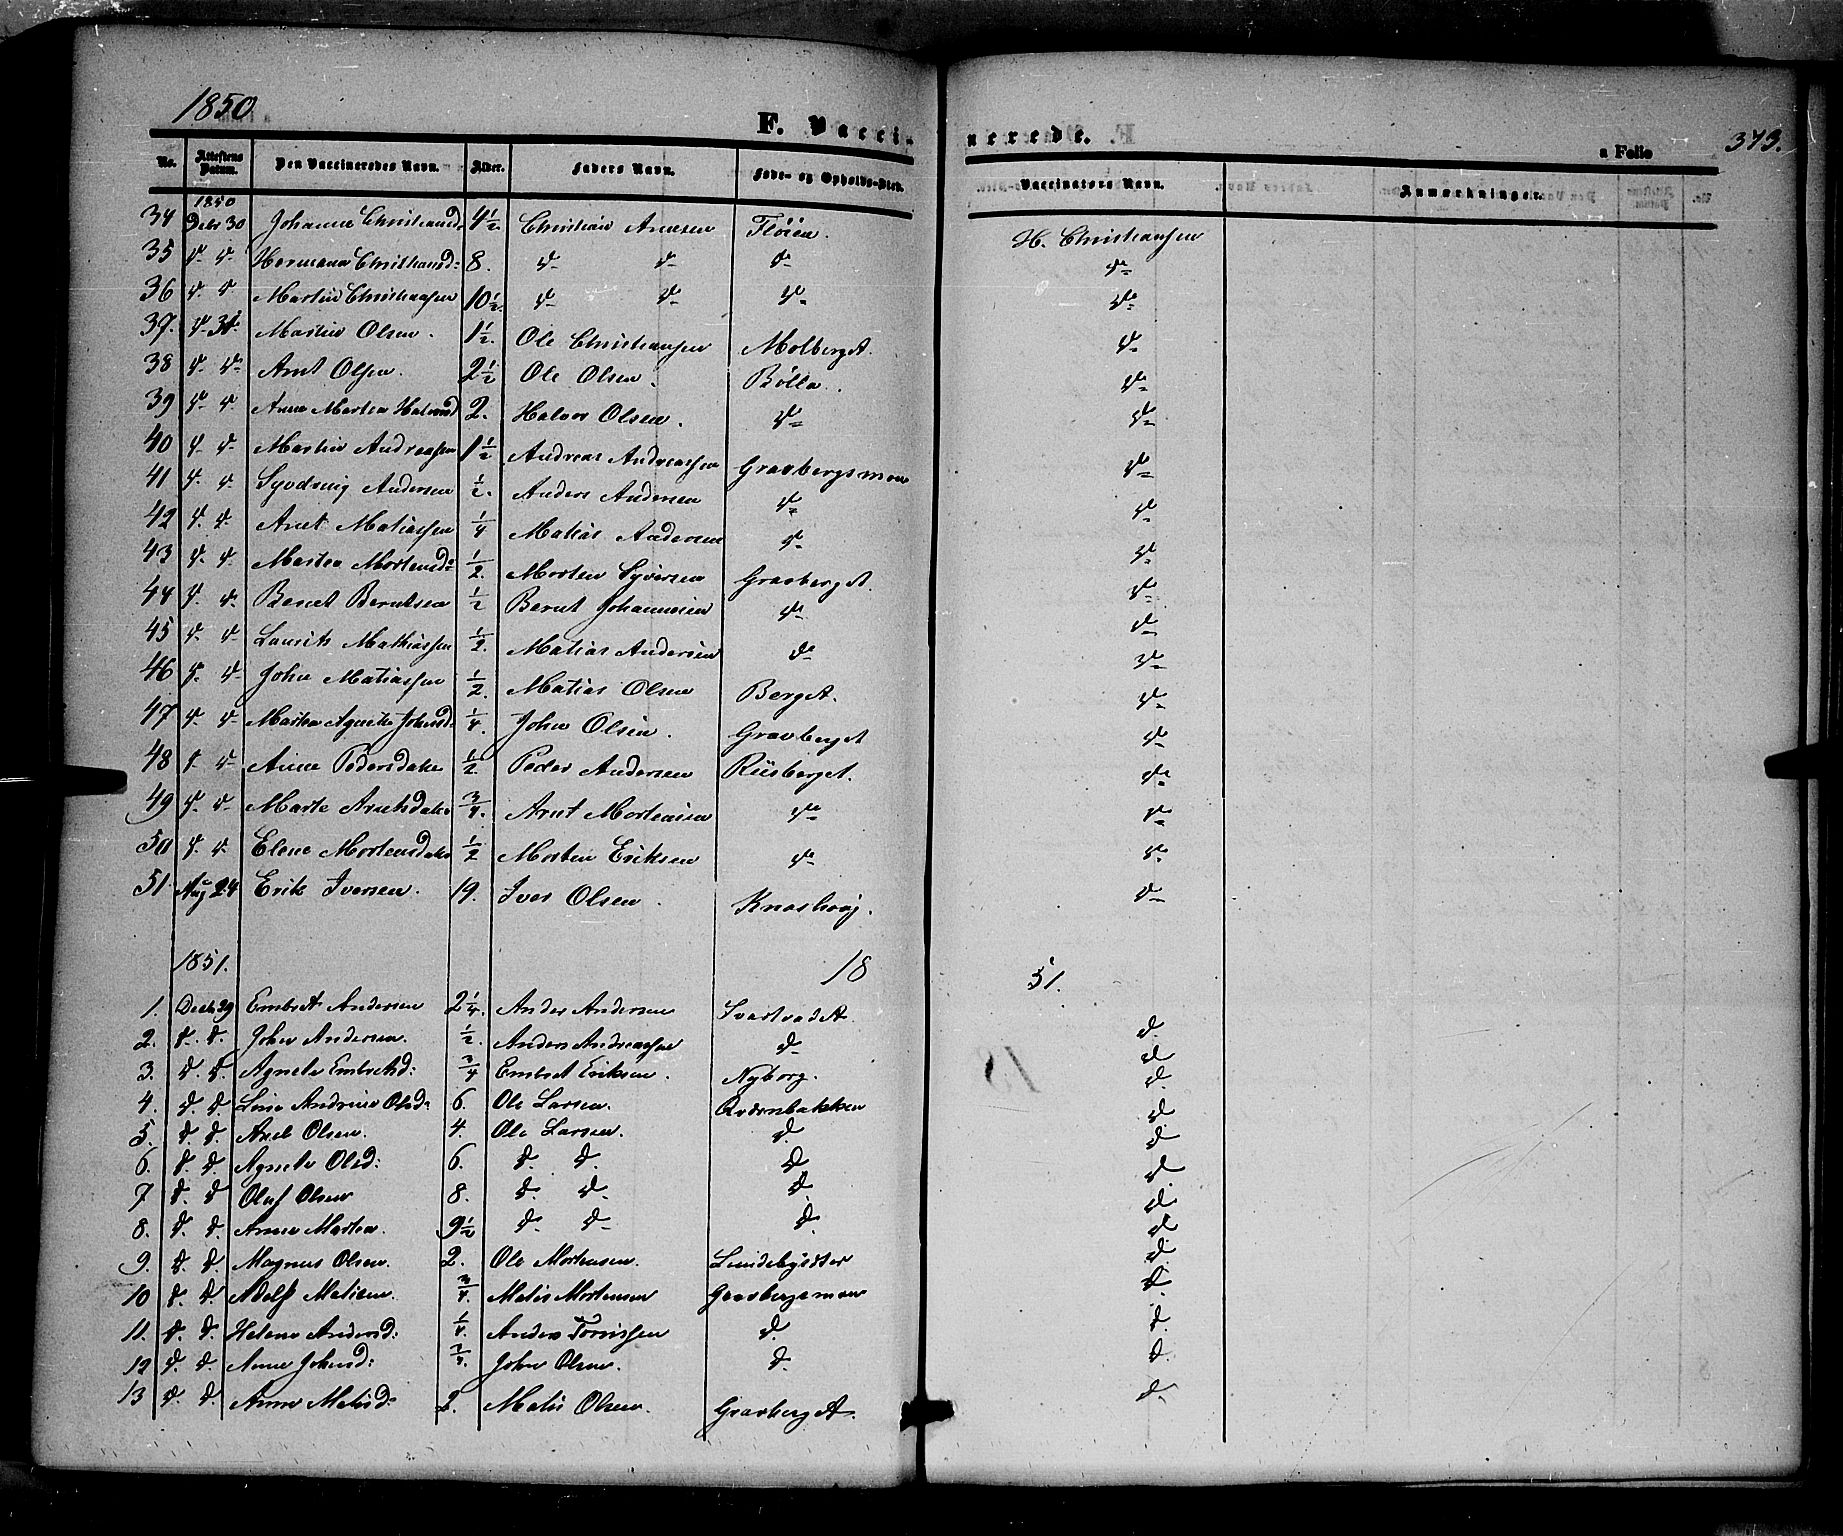 1850
F. Vacci- nerede.
a Folio 373.
No. Attestens Datum. Den Vaccineredes Navn. Alder. Faders Navn. Føde- og Opholds-Sted. Vaccinators Navn. Anmærkninger.
1850
34 Debr 30 Johanne Christiansd: 4 1/2. Christian Arnesen Fløien. H. Christiansen
35 d- d- Hermana Christiansd: 8. d- d- d- d-
36 d- d- Martin Christiansen 10 1/2. d- d- d- d-
37. d- 31- Martin Olsen. 1 1/2. Ole Christiansen Molberget. d-
38 d- d- Arnt Olsen. 2 1/2 Ole Olsen. Bölla. d-
39 d- d- Anne Martea Halvorsd 2. Halvor Olsen. d- d-
40 d- d- Martin Andreassen 1 1/2 Andreas Andreassen Gravbergsmoen d-
41 d- d- Andersen 1/2. Anders Andersen d- d-
42 d- d- Arnt Matiassen 1/4 Matias Andersen d- d-
43 d- d- Martea Mortensd: 1/2. Morten Syversen Gravberget. d-
44 d- d- Bernt Berntsen 1/2 Bernt Johannesen d- d-
45 d- d- Laurits Mathiassen 1/2. Matias Andersen d- d-
46 d- d- John Matiassen 1/2. Matias Olsen Berget. d-
47 d- d- Martea Agnethe Johnsd: 1/4. John Olsen. Gravberget d-
48 d- d- Anne Pedersdatter 1/2 Peder Andersen Riisberget. d-
49 d- d- Marte Arntsdatter 3/4. Arnt Mortensen d- d-
50 d- d- Elene Mortensdatter 1/2 Morten Eriksen d- d-
51. Aug 24 Erik Iversen. 19. Iver Olsen. d-
1851. 18 51.
1. Decbr 29 Embret Andersen 2 1/4. Anders Andersen Svartvadet
2. d- d. John Andersen. 1/2. Anders Andreassen d- d.
3. d. d. Agnete Embretsd: 3/4 Embret Eriksen. Nyborg. d
4. d. d. Line Andrine Olsd: 6. Ole Larsen. Qværnbakken d.
5. d. d. Axel Olsen. 4. Ole Larsen. d. d
6. d. d. Agnete Olsd: 6. d. d. d d
7 d. d Oluf Olsen 8. d. d- d d
8. d. d. Anne Martea. 9 1/2 d- d- d. d
9. d. d. Magnus Olsen. 2. Ole Mortensen. Lundebysæter d
10 d. d. Adolf Matisen. 3/4. Matis Mortensen Gravbergsmoen d.
11. d. d. Helene Andersd: 1/4. Anders Tonnissen d. d.
12 d. d. Anne Johnsd: 3/4. John Olsen. d. d.
13 d. d. Anne Matisd: 2. Matis Olsen. Gravberget. d.